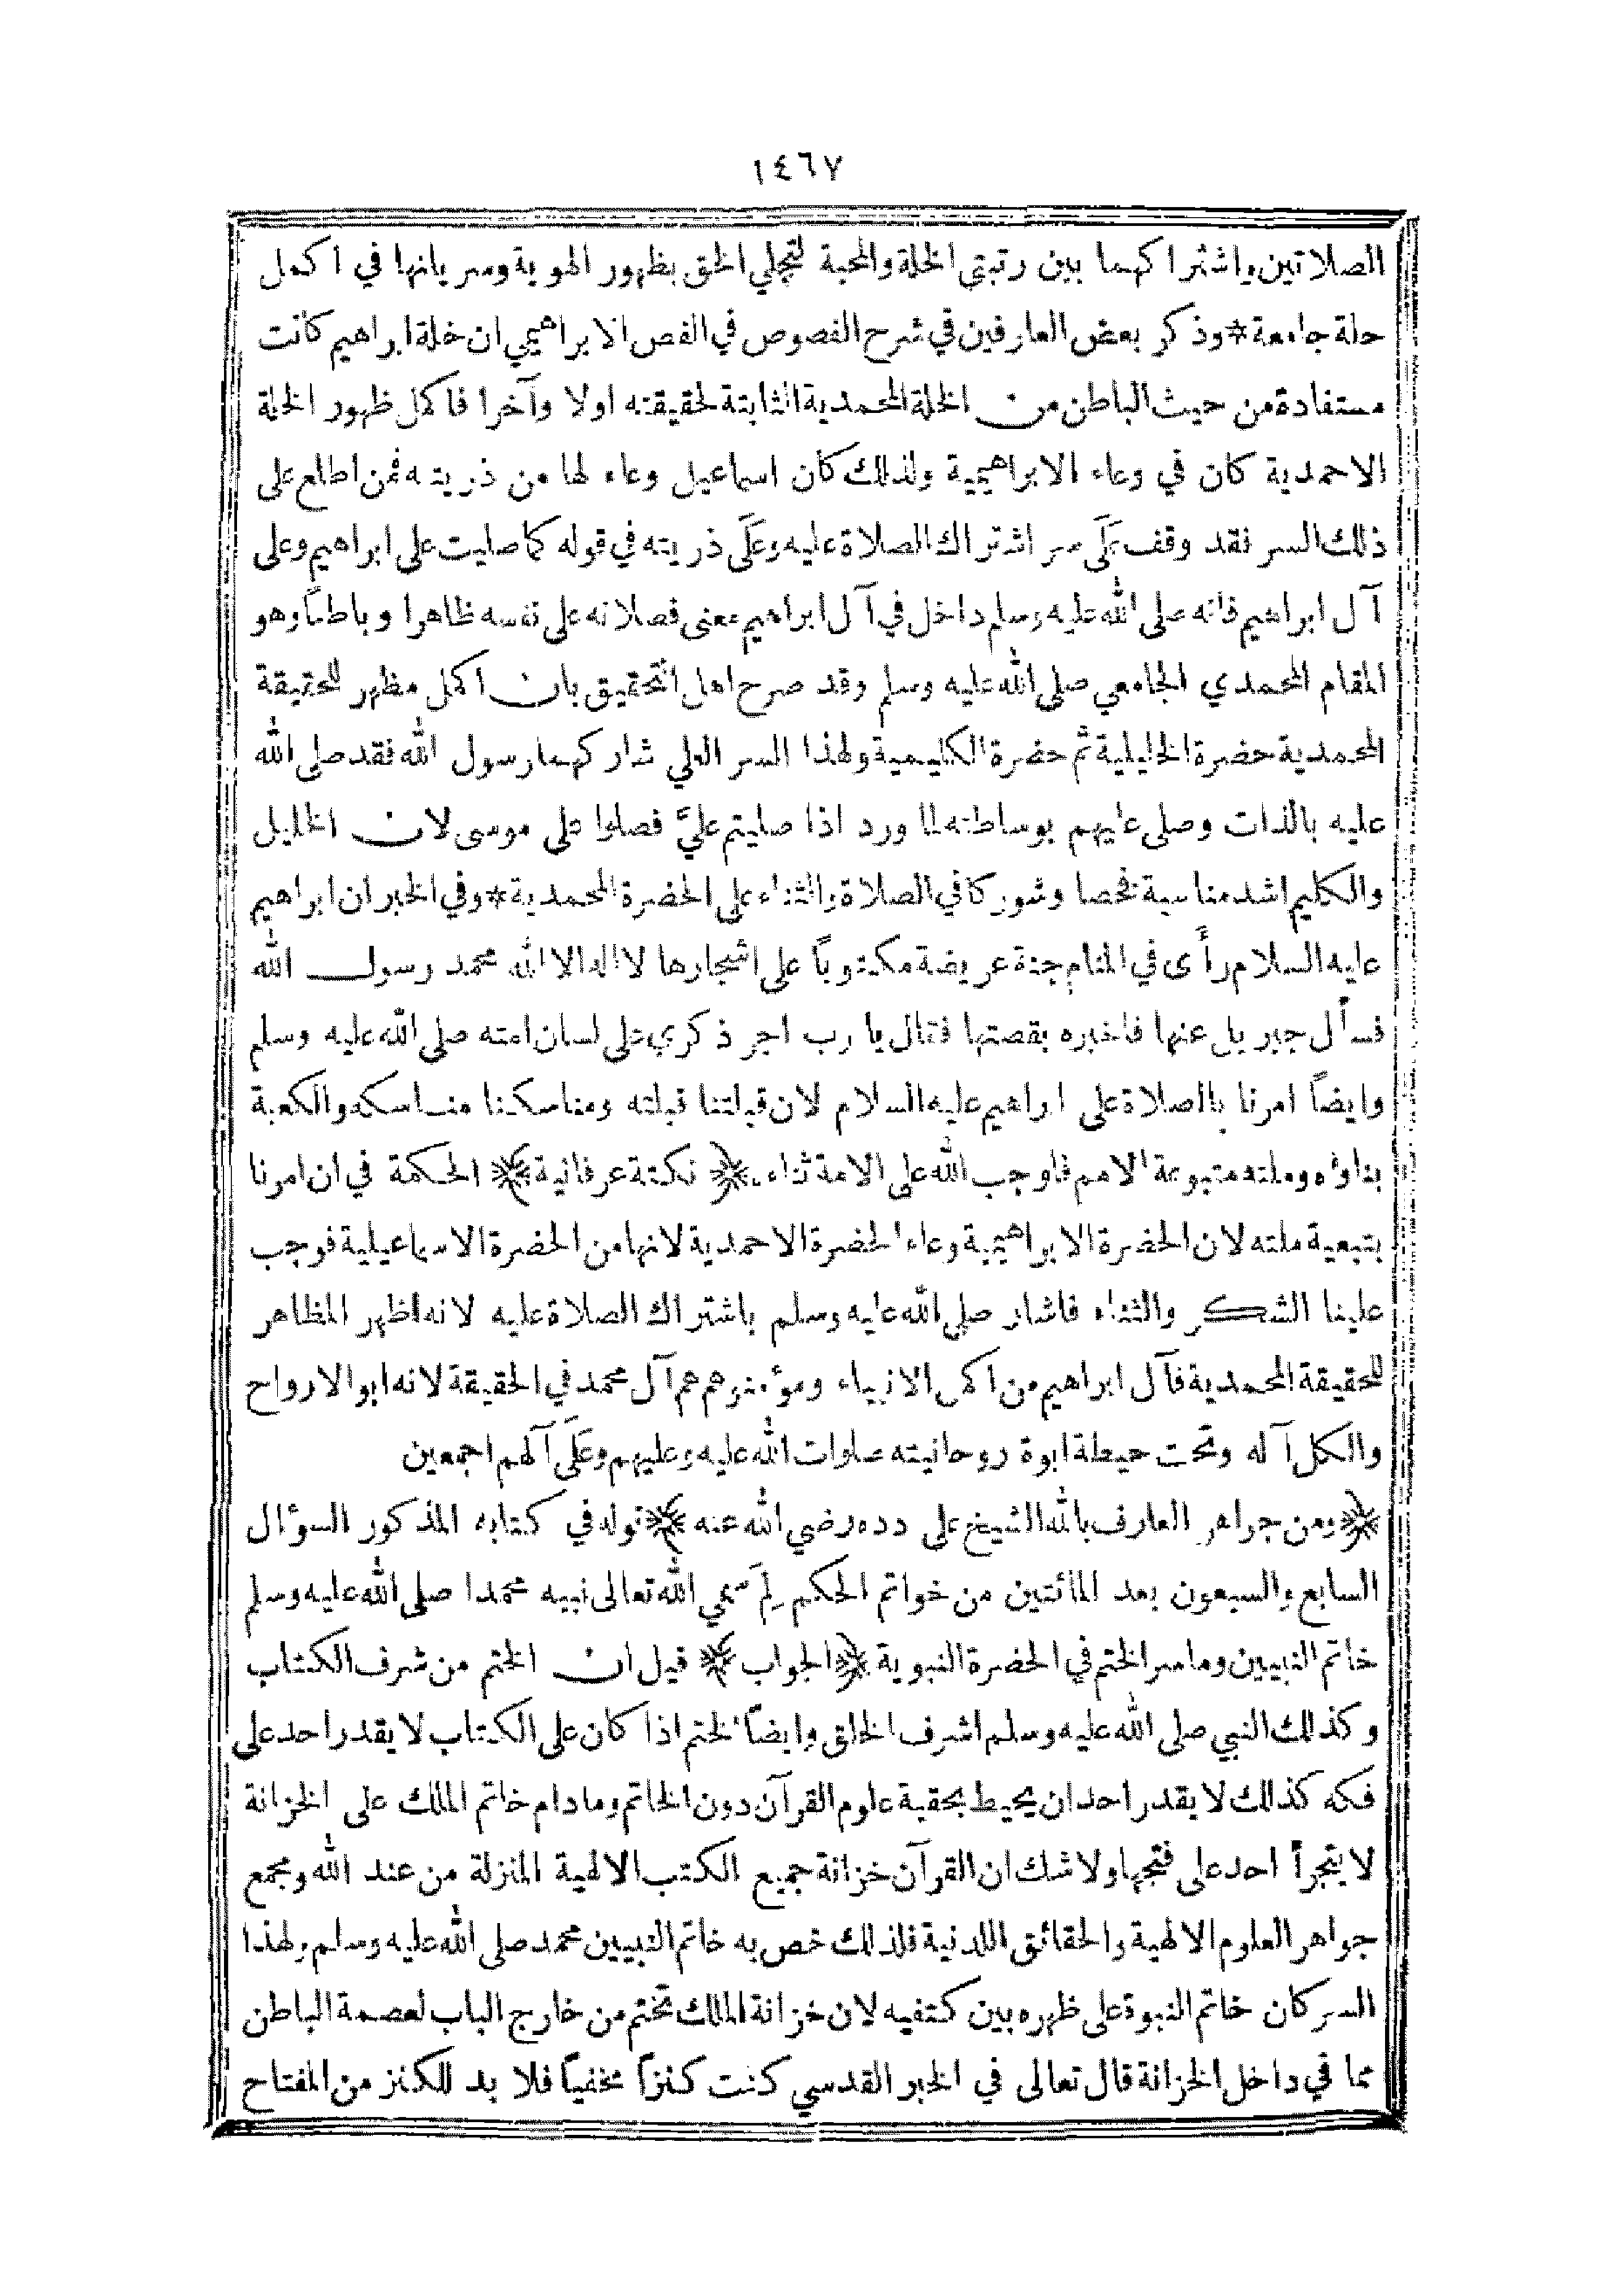 ١٤٦٧
الصلاتين واشتراكهما بين رتبتي الخلة والمحبة لتجلي الحق بظهور الهوية وسريانها في اكمل
حلة جامعة * وذكر بعض العارفين في شرح الفصوص في الفص الابراهيمي ان خلة ابراهيم كانت
مستفادة من حيث الباطن من الخلة المحمدية الثابتة لحقيقته اولا وآخرا فاكمل ظهور الخلة
الاحمدية كان في وعاء الابراهيمية ولذلك كان اسماعيل وعاء لها من ذريته فمن اطلع على
ذلك السر فقد وقف عَلَى سر اشتراك الصلاة عليه وعَلَى ذريته في قوله كما صليت على ابراهيم وعلى
آل ابراهيم فانه صلى الله عليه وسلم داخل في آل ابراهيم معنى فصلاته على نفسه ظاهرا وباطناً وهو
المقام المحمدي الجامعي صلى الله عليه وسلم وقد صرح اهل التحقيق بان اكمل مظهر للحقيقة
المحمدية حضرة الخليلية ثم حضرة الكليمية ولهذا السر العلي شاركهما رسول الله فقد صلى الله
عليه بالذات وصلى عليهم بوساطته لما ورد اذا صليتم عليَّ فصلوا على موسى لان الخليل
والكليم اشد مناسبة فخصا وشوركا في الصلاة والثناء على الحضرة المحمدية * وفي الخبر ان ابراهيم
عليه السلام رأى في المنام جنة عريضة مكتوباً على اشجارها لا اله الا الله محمد رسول الله
فسأل جبريل عنها فاخبره بقصتها فقال يا رب اجر ذكري على لسان امته صلى الله عليه وسلم
وايضاً امرنا بالصلاة على ابراهيم عليه السلام لان قبلتنا قبلته ومناسكنا مناسكه والكعبة
بناؤه وملته متبوعة الامم فاوجب الله على الامة ثناءه ﴿ نكتة عرفانية ﴾ الحكمة في ان امرنا
بتبعية ملته لان الحضرة الابراهيمية وعاء الحضرة الاحمدية لانها من الحضرة الاسماعيلية فوجب
علينا الشكر والثناء فاشار صلى الله عليه وسلم باشتراك الصلاة عليه لانه اظهر المظاهر
للحقيقة المحمدية فآل ابراهيم من اكمل الانبياء ومؤمنوهم هم آل محمد في الحقيقة لانه ابو الارواح
والكل آله وتحت حيطة ابوة روحانيته صلوات الله عليه وعليهم وعَلَى آلهم اجمعين
﴿ ومن جواهر العارف بالله الشيخ على دده رضي الله عنه ﴾ قوله في كتابه المذكور السؤال
السابع والسبعون بعد المائتين من خواتم الحكم لِمَ سمي الله تعالى نبيه محمدا صلى الله عليه وسلم
خاتم النبيين وما سر الختم في الحضرة النبوية ﴿ الجواب ﴾ قيل ان الختم من شرف الكتاب
وكذلك النبي صلى الله عليه وسلم اشرف الخلق وايضاً الختم اذا كان على الكتاب لا يقدر احد على
فكه كذلك لا يقدر احد ان يحيط بحقيقة علوم القرآن دون الخاتم وما دام خاتم الملك على الخزانة
لا يتجرأ احد على فتحها ولا شك ان القرآن خزانة جميع الكتب الالهية المنزلة من عند الله ومجمع
جواهر العلوم الالهية والحقائق اللدنية فلذلك خص به خاتم النبيين محمد صلى الله عليه وسلم ولهذا
السر كان خاتم النبوة على ظهره بين كتفيه لان خزانة الملك تختم من خارج الباب لعصمة الباطن
مما في داخل الخزانة قال تعالى في الخبر القدسي كنت كنزاً مخفياً فلا بد للكنز من المفتاح